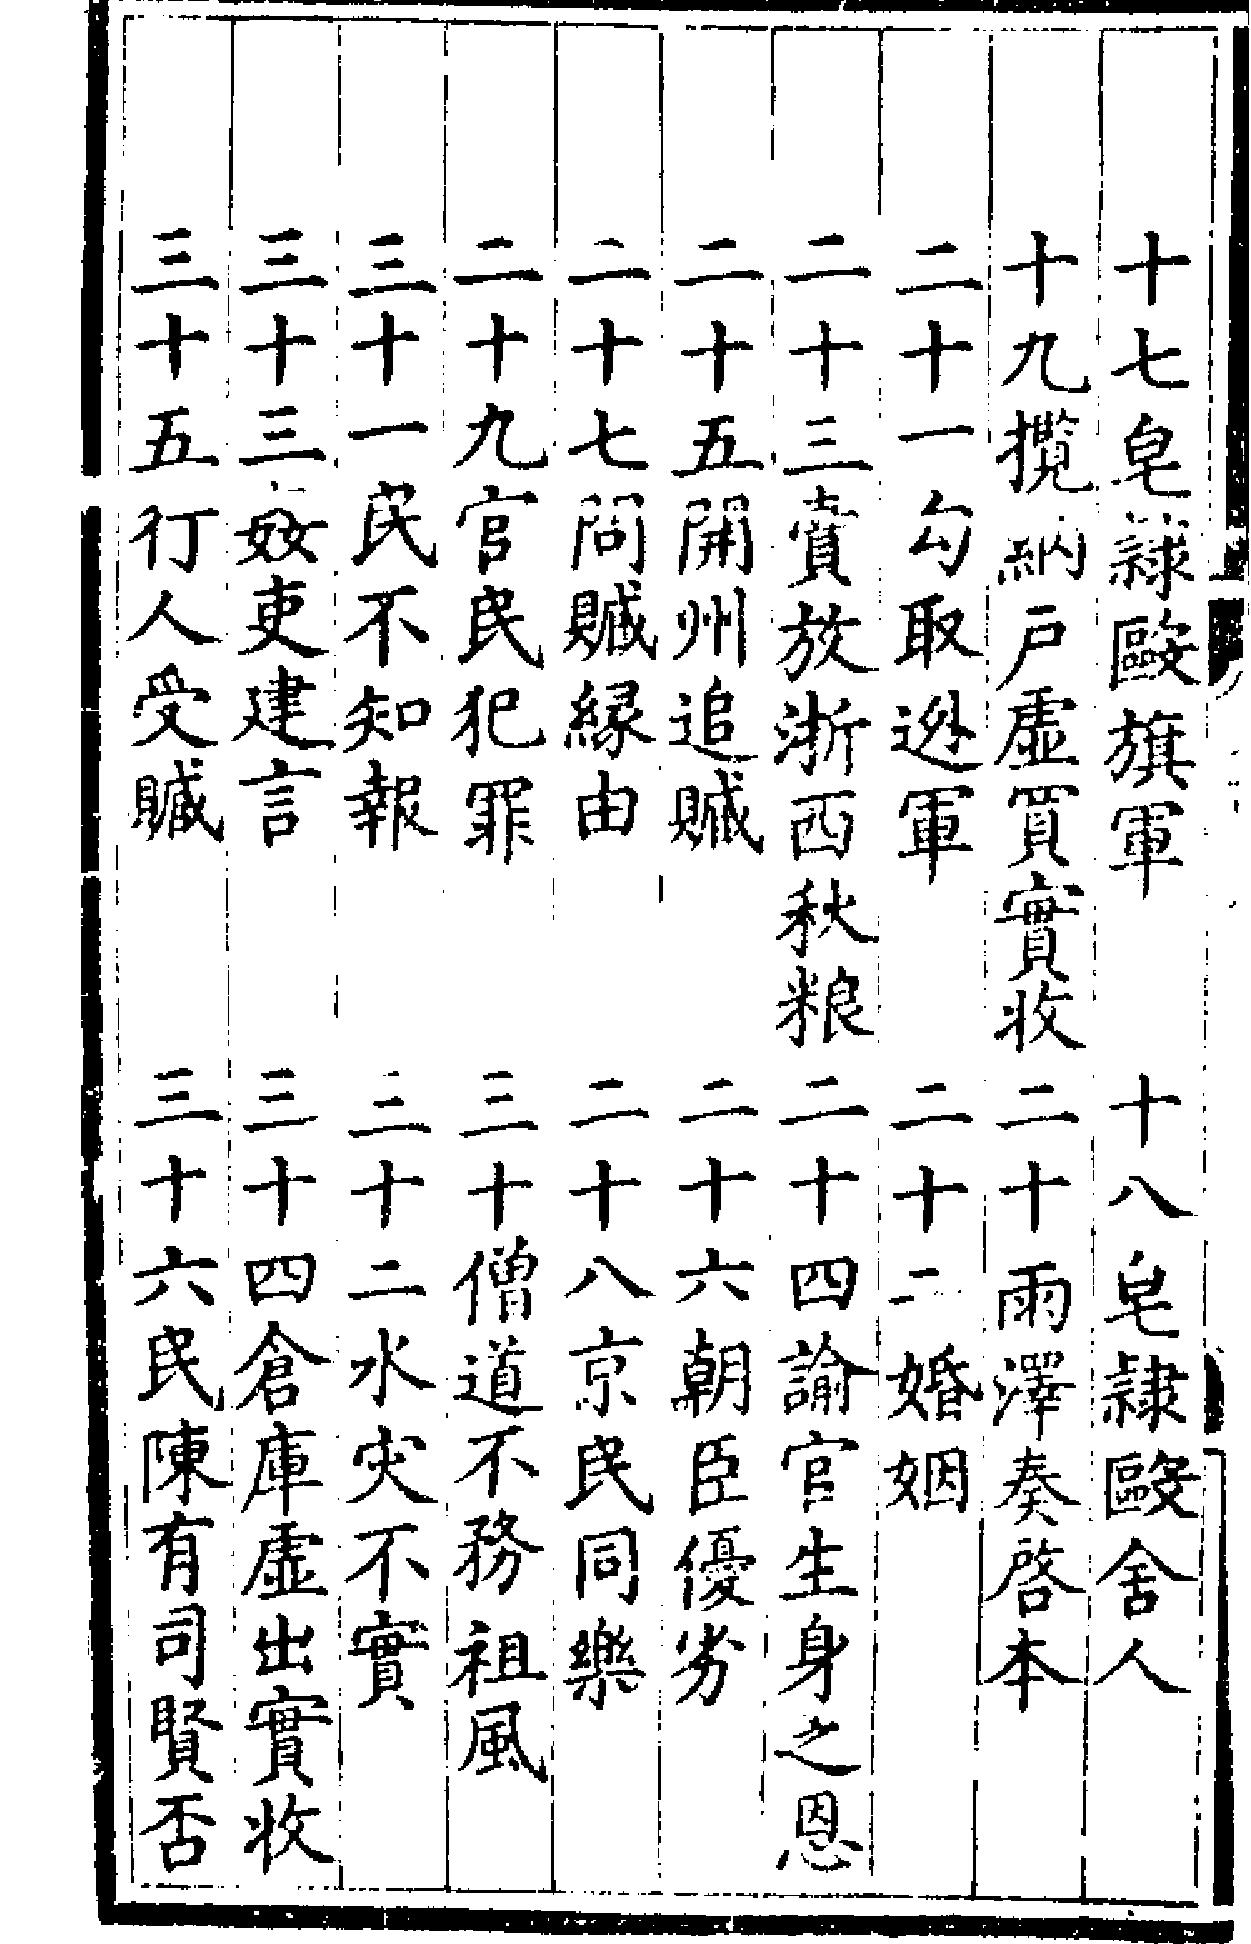 十七皂隸毆旗軍　十八皂隸毆舍人
十九攬納戶虛買實收　二十雨澤奏啓本
二十一勾取逃軍　二十二婚姻
二十三賣放浙西秋粮　二十四諭官生身之恩
二十五開州追贓　二十六朝臣優劣
二十七問贓緣由　二十八京民同樂
二十九官民犯罪　三十僧道不務祖風
三十一民不知報　三十二水災不實
三十三姦吏建言　三十四倉庫虛出實收
三十五行人受贓　三十六民陳有司賢否